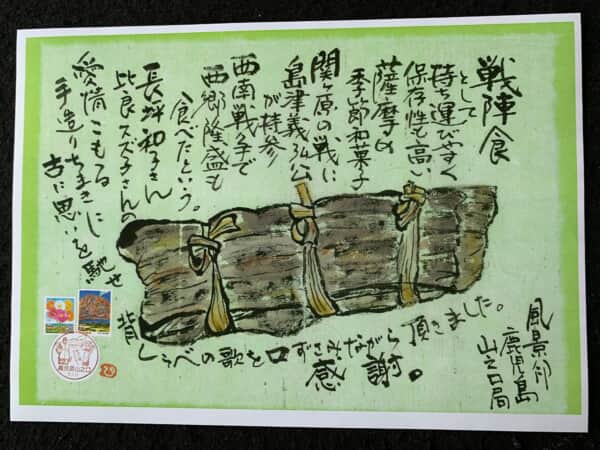 戦陣食
として
持ち運びやすく
保存性も高い
薩摩の
季節和菓子
関ヶ原の戦に
島津義弘公
が持参
西南戦争で
西郷隆盛も
食べたという。
長坪和子さん
比良スズ子さんの
愛情こもる
手造りちまきに
古に思いを馳せ
背しらべの歌を口ずさみながら頂きました。
感謝。
風景印
鹿児島
山之口局